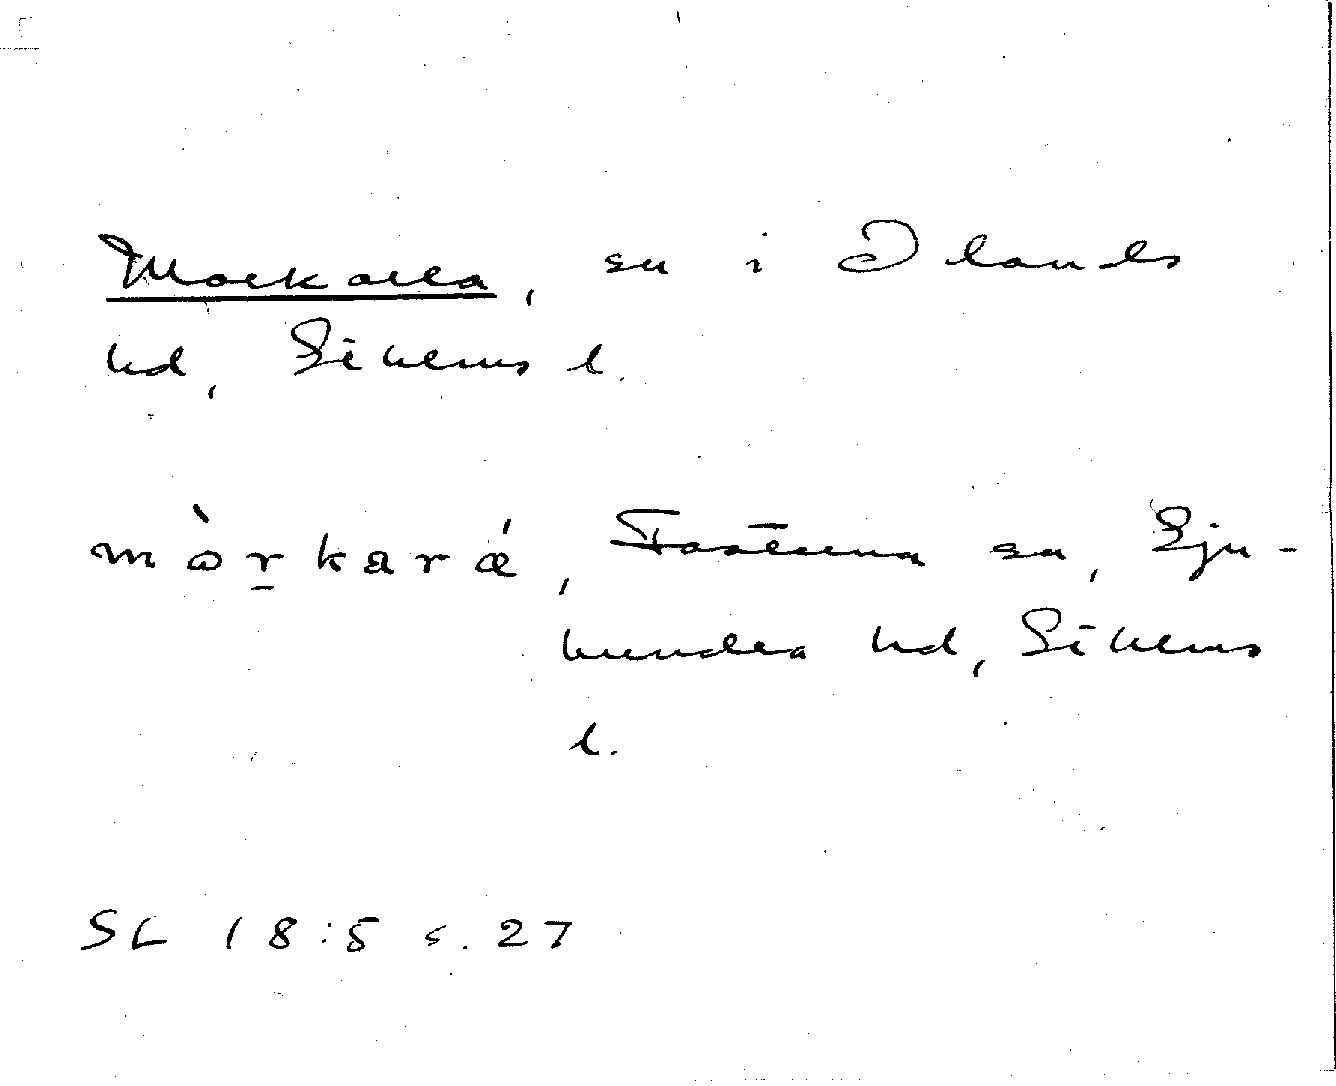 Morkarla, sn i Olands
hd, Sthlms l.
mòrkará, Fasterna sn, Sju-
hundra hd, Sthlms
l.
SL 18:5 s. 27